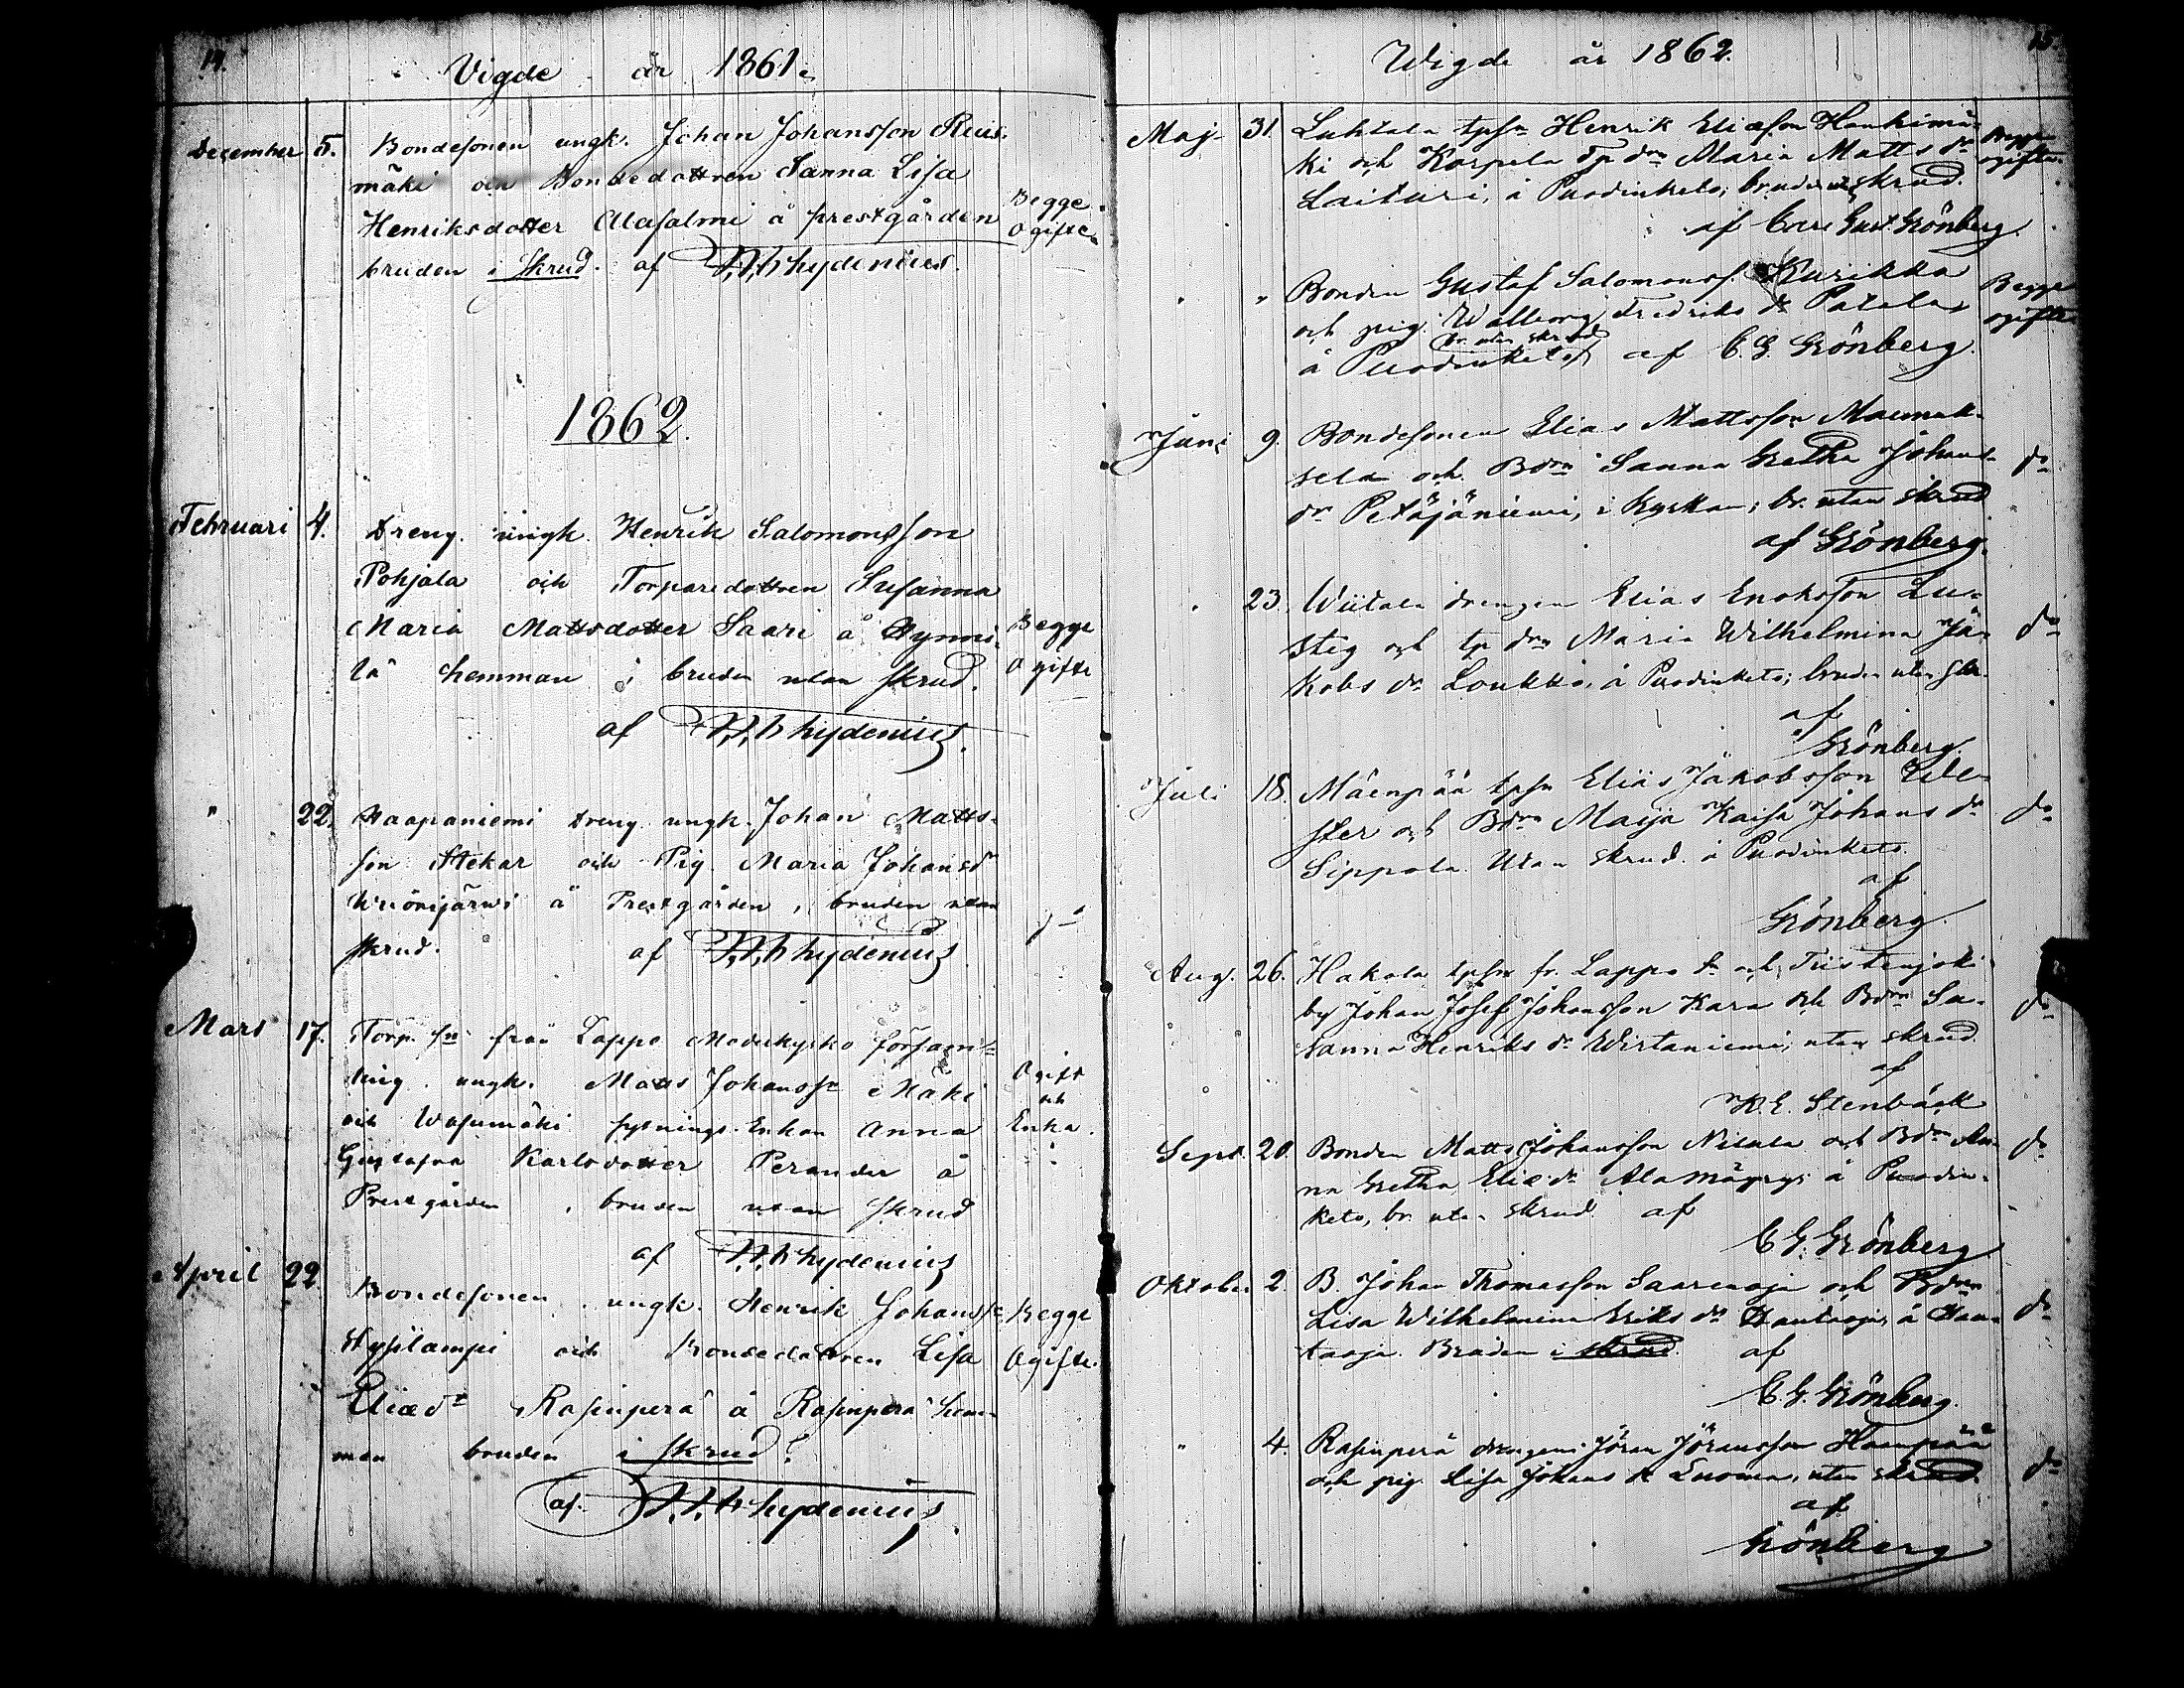 14.
Vigde år 1861.
December 5. Bondesonen ungk. Johan Johansson Rius-
mäki och Bondedottren Sanna Lisa
Henriksdotter Alasalmi å prestgården Begge
bruden i skrud. af Hydenius. Ogifte.
1862.
Februari 4. Dreng. ungk. Henrik Salomonsson
Pohjala och Torparedottren Susanna
Maria Mattsdotter Saari å Hynni- Begge
lä hemman; bruden utan skrud. Ogifte
af Hydenius.
" 22. Haapaniemi dreng ungk. Johan Matts-
son Stekar och Pig. Maria Johansdr
å Prestgården, bruden utan
skrud. af Hydenius do
Mars 17. Torp. sn från Lappo Moderkyrko försam-
ling ungk. Matts Johanss. Mäki Ogift
och Wasumäki sytnings Enkan Anna och Enka.
Gustafva Karlsdotter Perander å
Prestgården, bruden utan skrud
af Hydenius
April 22. Bondesonen ungk. Henrik Johanss. Begge
Hyplampi och Bondedottren Lisa Ogifte.
Eliædr Rasinperä å Rasinperä hem-
man bruden i skrud.
af Hydenius.
15.
Wigde år 1862.
Maj 31. Luhtala tpsn Henrik Eliæson Hankimä- Begge
ki och Karpela Tp drn Maria Matts dr ogifta.
Laituri, å Puodinketo; bruden utan skrud.
af Carl Gust. Grönberg.
" " Bonden Gustaf Salomonss. Kurikka Begge
och pig. Walborg Fredriks dr Potala ogifta
br. utan skrud
å Puodinketo, af C. G. Grönberg.
Juni 9. Bondesonen Elias Mattsson Maunuk-
sela och Bdrn Sanna Gretha Johans do
dr Petäjäniemi, i Kyrkan; br. utan skrud
af Grönberg.
" 23. Wiitala drengen Elias Enoksson Lu-
stig och tp drn Maria Wilhelmina Ja- do
kobs dr Loukko, å Puodinketo; bruden utan skr.
af
Grönberg.
Juli 18. Mäenpää tpsn Elias Jakobsson
ster och Bdrn Maija Kaisa Johans dr do
Sippola. Utan skrud. å Puodinketo.
af
Grönberg.
Aug. 26. Hakola tpsn fr. Lappo och Tiistenjoki
by Johan Josef Johansson Kara och Bdrn Su- do
sanna Henriks dr Wirtaniemi; utan skrud
af
K. E. Stenbäck
Sept. 20. Bonden Matts Johansson Nilula och Bdrn An- do
na Gretha Eliæ dr Alamäyry å Puodin-
keto, br. utan skrud af
C G. Grönberg
Oktober 2. B. Johan Thomasson Saarenoja och Bdrn
Lisa Wilhelmina Eriks dr Hautaoja å Hau- do
taoja. Bruden i skrud. af
C. G. Grönberg.
" 4. Rasinperä drengen Jöran Jöransson Haanpää
och pig Lisa Johans dr Luoma, utan skrud. do
af
Grönberg